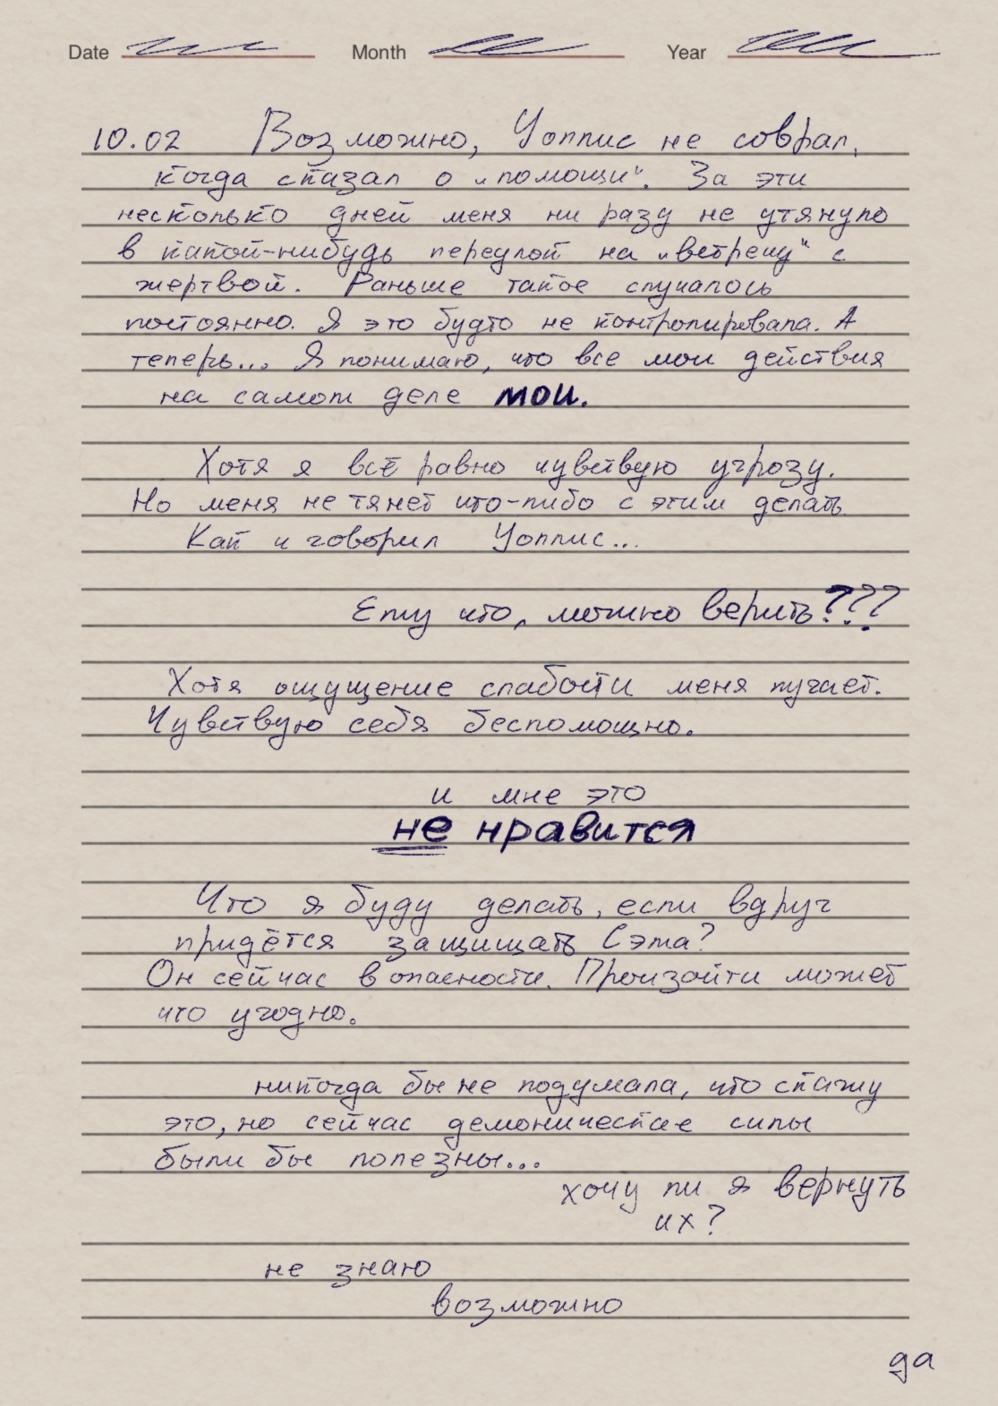 Date Month Year
10.02 Возможно, Уоллис не соврал,
когда сказал о „помощи“. За эти
несколько дней меня ни разу не утянуло
в какой-нибудь переулок на „встречу“ с
жертвой. Раньше такое случалось
постоянно. Я это будто не контролировала. А
теперь... Я понимаю, что все мои действия
на самом деле мои.
Хотя я всё равно чувствую угрозу.
Но меня не тянет что-либо с этим делать
Как и говорил Уоллис...
Ему что, можно верить???
Хотя ощущение слабости меня пугает.
Чувствую себя беспомощно.
и мне это
не нравится
Что я буду делать, если вдруг
придётся защищать Сэма?
Он сейчас в опасности. Произойти может
что угодно.
никогда бы не подумала, что скажу
это, но сейчас демонические силы
были бы полезны...
хочу ли я вернуть
их?
не знаю
возможно
да